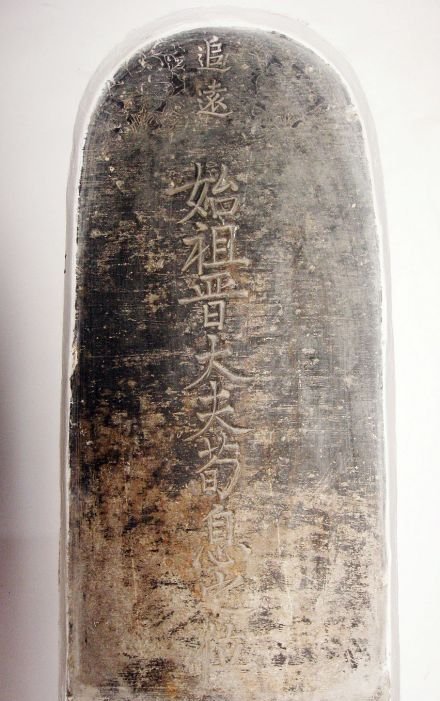 追遠
始祖晋大夫荀息之